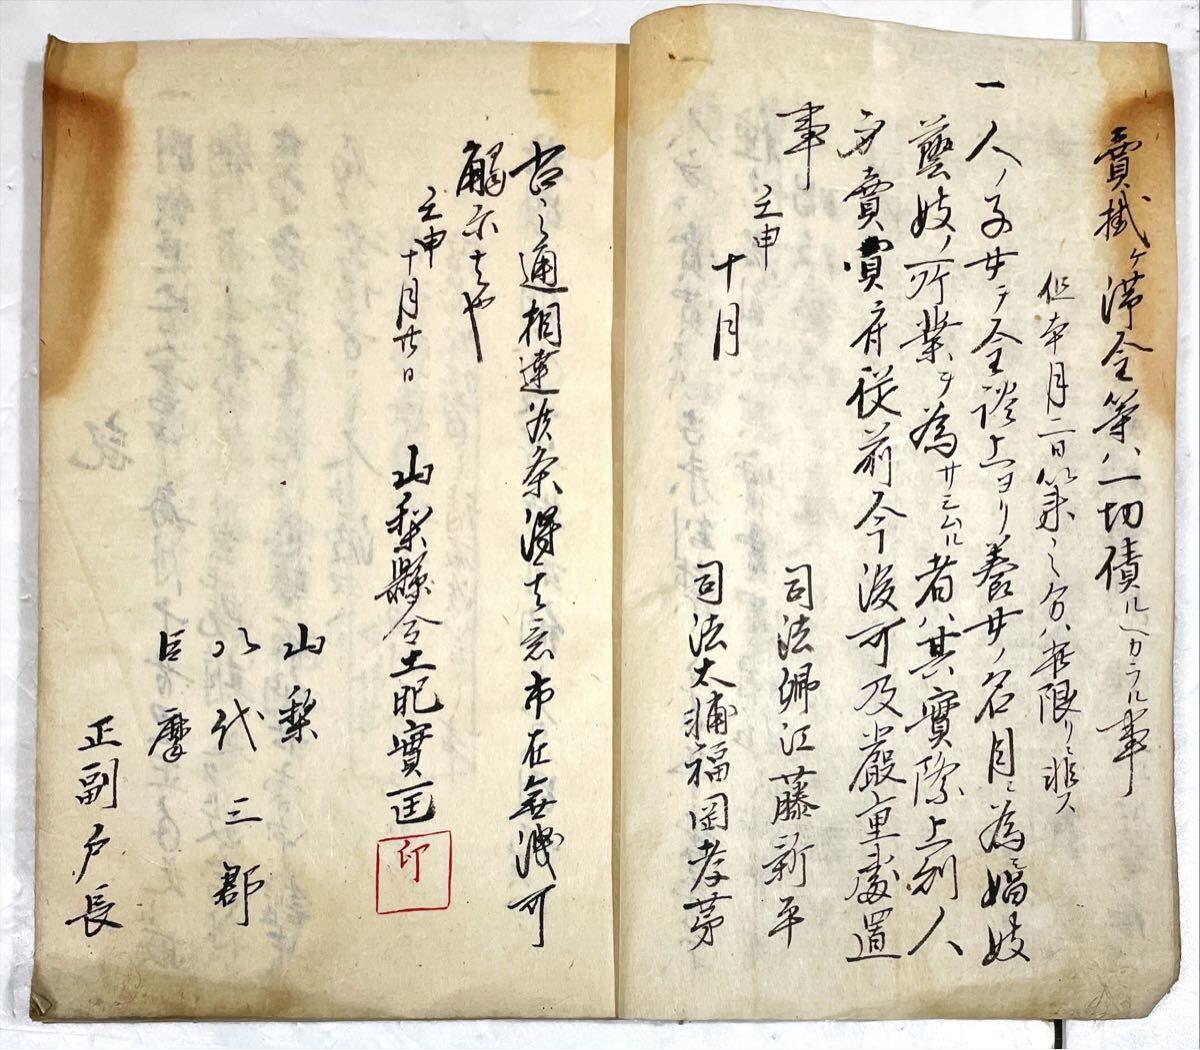 賣掛ケ滞金等ハ一切債ルヘカラル事
但本月二日以来之分ハ此限リニ非ス
一人ノ子女ヲ金談上ヨリ養女ノ名目ニ為シ娼妓
藝妓ノ所業ヲ為サシムル者ハ其實際上則人
身賣買ニ付従前今後可及嚴重處置
事
壬申
十月
司法卿江藤新平
司法大輔福岡孝茅
右之通相達候条得其意市在無洩可
觸示もの也
壬申十月廿日
山梨縣令土肥實匡
印
山梨
八代三郡
巨摩
正副戸長